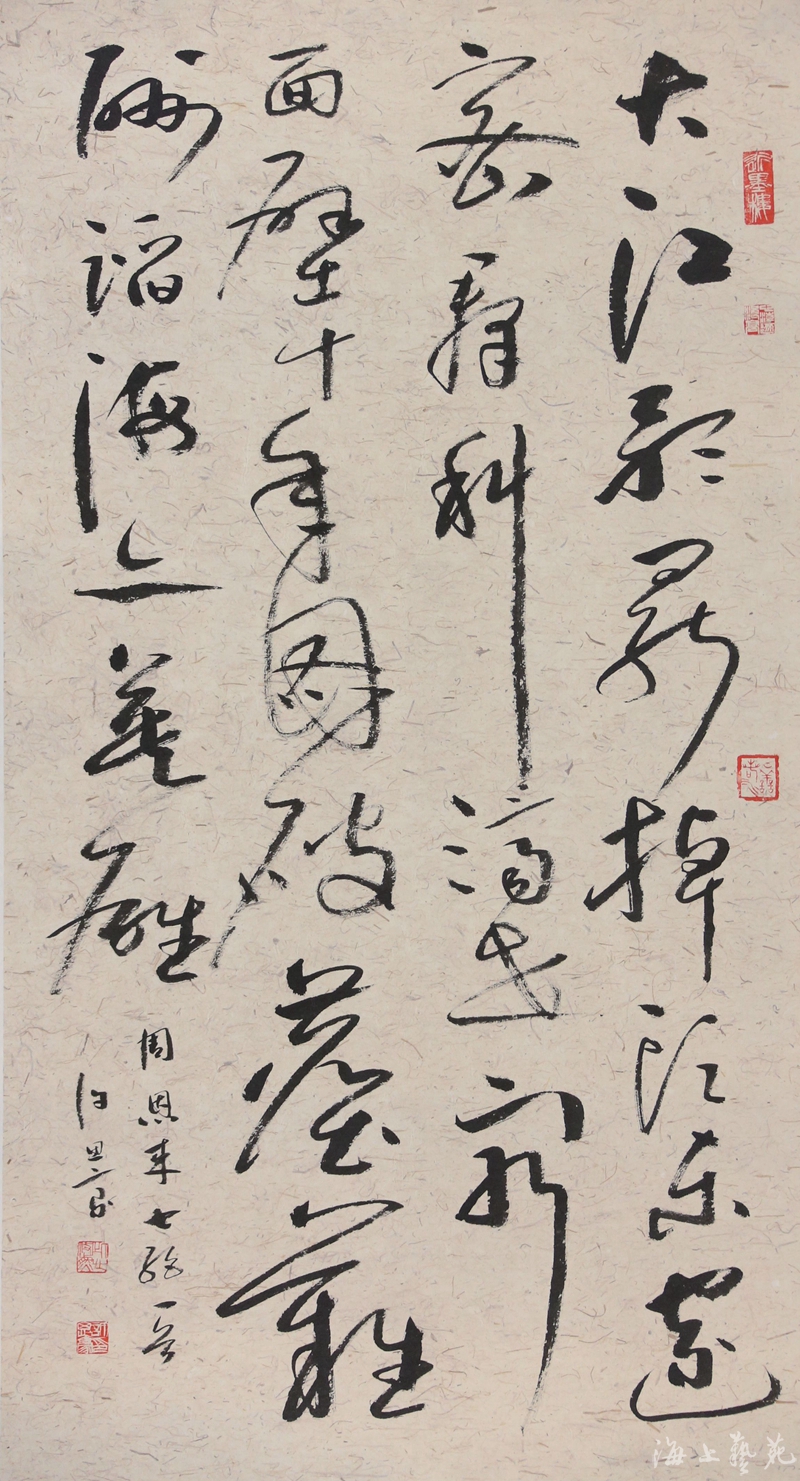 大江歌罷掉頭東邃
密群科濟世窮
面壁十年圖破壁難
酬蹈海亦英雄
周恩来七絕一首
海上藝苑